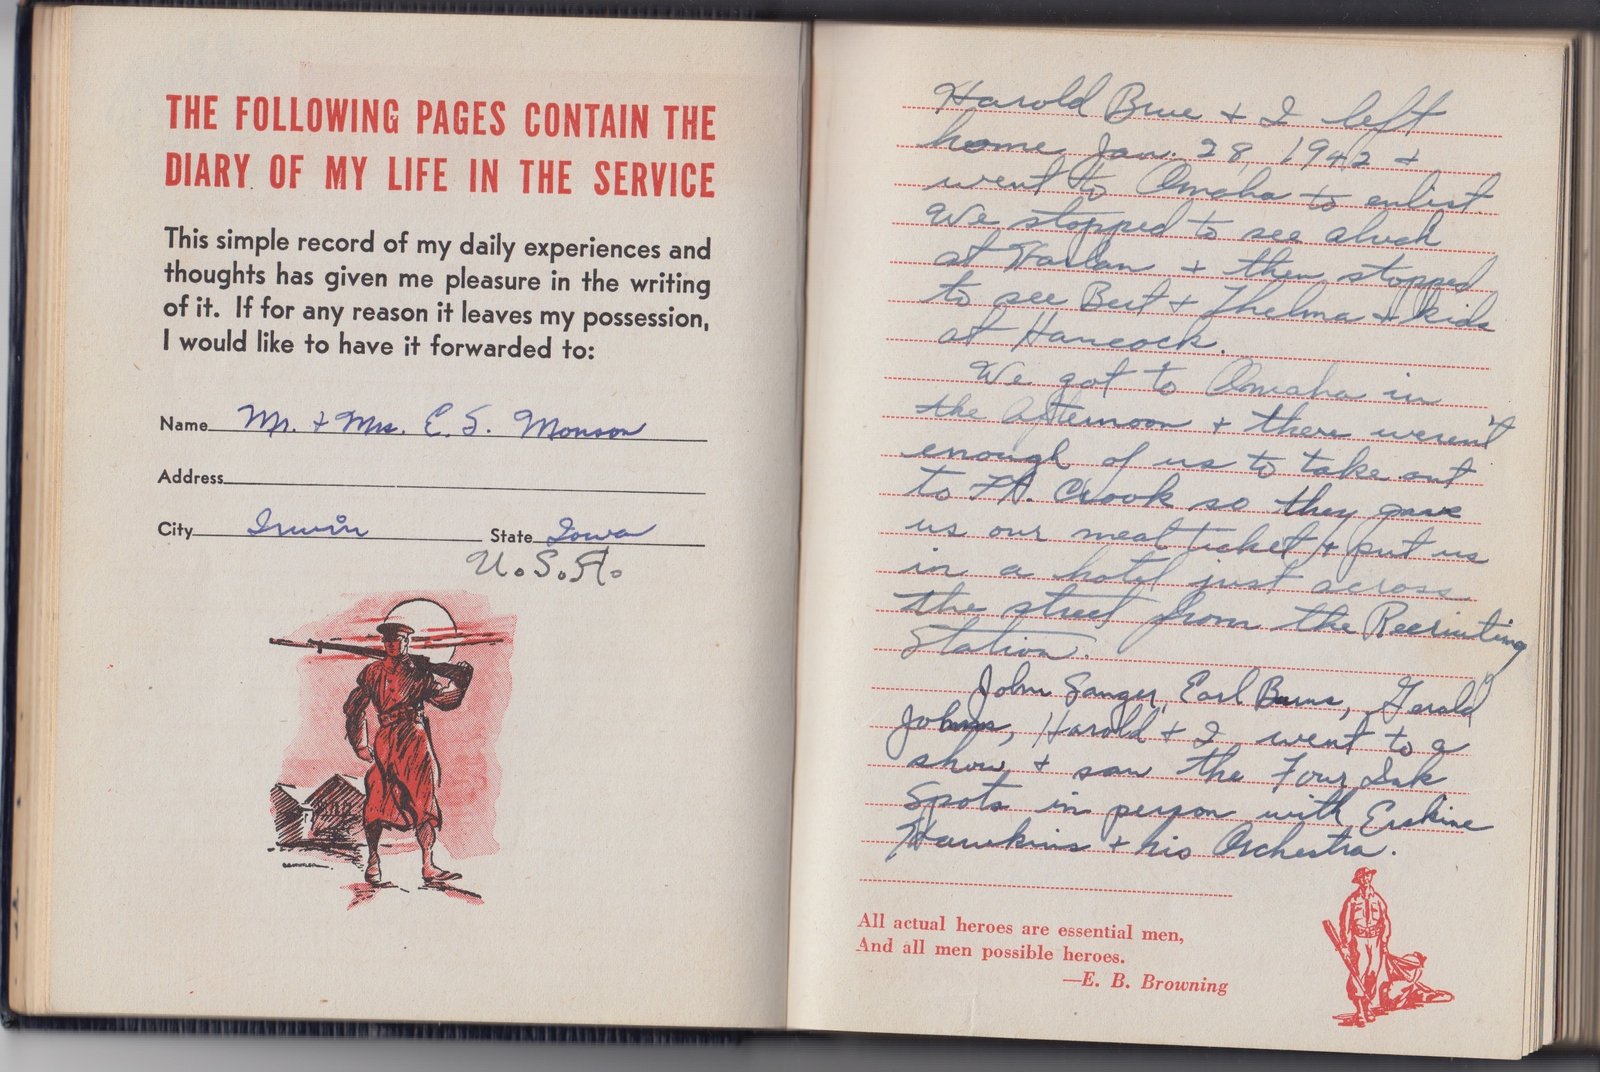 THE FOLLOWING PAGES CONTAIN THE
DIARY OF MY LIFE IN THE SERVICE
This simple record of my daily experiences and
thoughts has given me pleasure in the writing
of it. If for any reason it leaves my possession,
I would like to have it forwarded to:
Name Mr. + Mrs. E. S. Monson
Address
City Irwin State Iowa
U.S.A.
Harold Brue + I left
home Jan. 28, 1942 +
went to Omaha to enlist.
We stopped to see
at Harlan + then stopped
to see Bert + Thelma + kids
at Hancock.
We got to Omaha in
the afternoon + there weren't
enough of us to take out
to Ft. Crook so they gave
us our meal ticket + put us
in a hotel just across
the street from the Recruiting
Station.
John Sanger, Earl Burns, Gerald
Johns, Harold + I went to a
show + saw the Four Ink
Spots in person with Erskine
Hawkins + his Orchestra.
All actual heroes are essential men,
And all men possible heroes.
—E. B. Browning